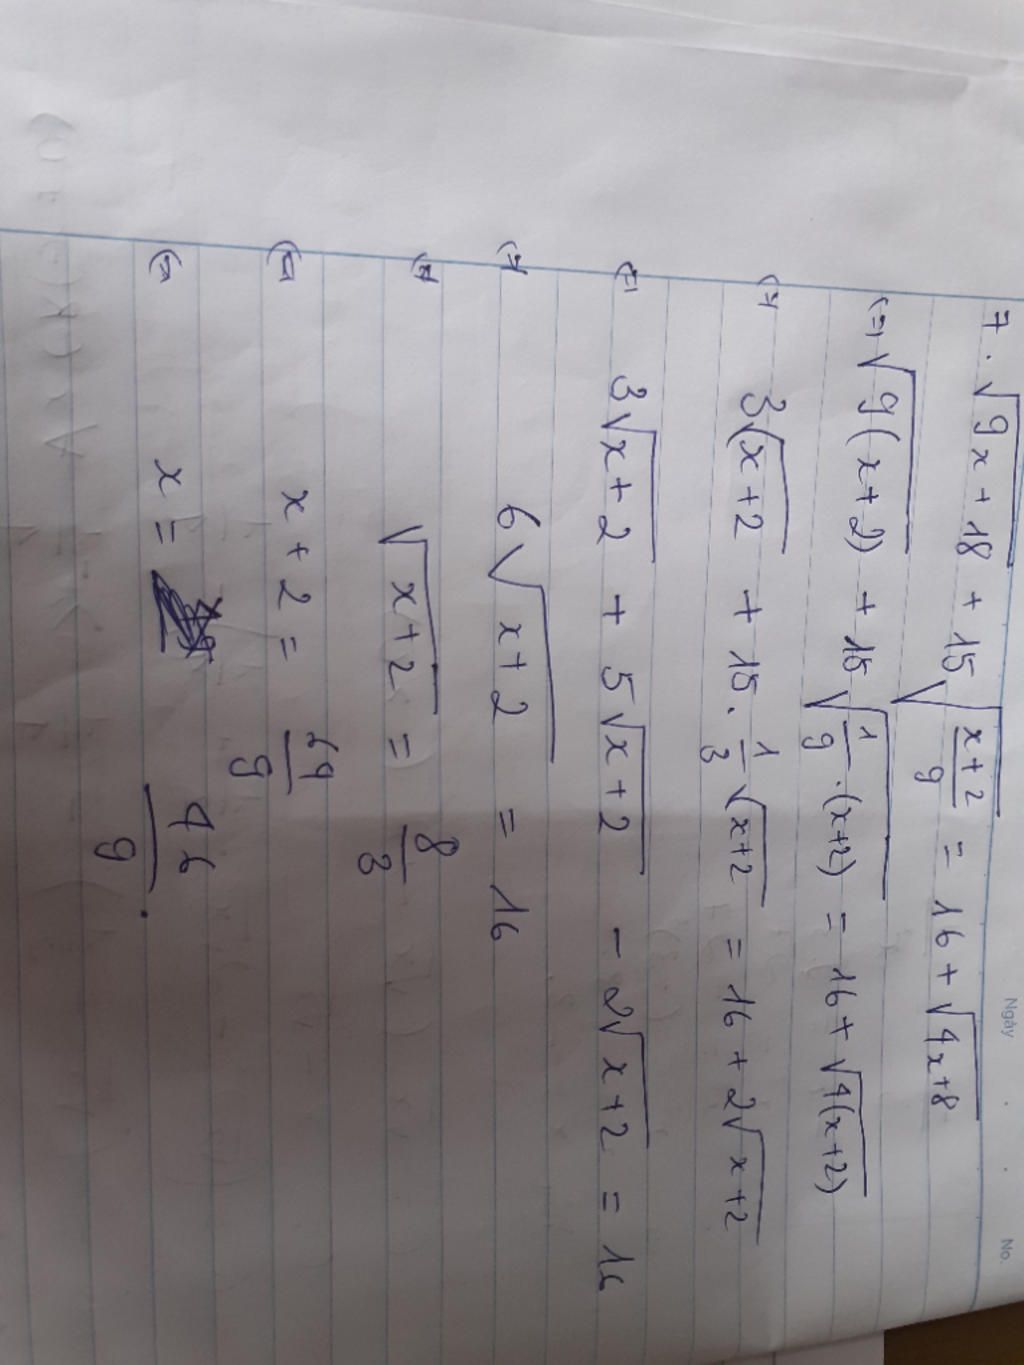 Ngày . . No.
7. √(9x + 18) + 15√((x+2)/9) = 16 + √(4x+8)
(=) √(9(x+2)) + 15√(1/9 .(x+2)) = 16 + √(4(x+2))
(=) 3√(x+2) + 15. 1/3 √(x+2) = 16 + 2√(x+2)
(=) 3√(x+2) + 5√(x+2) - 2√(x+2) = 16
(=) 6√(x+2) = 16
(=) √(x+2) = 8/3
(=) x + 2 = 64/9
(=) x = 46/9 .